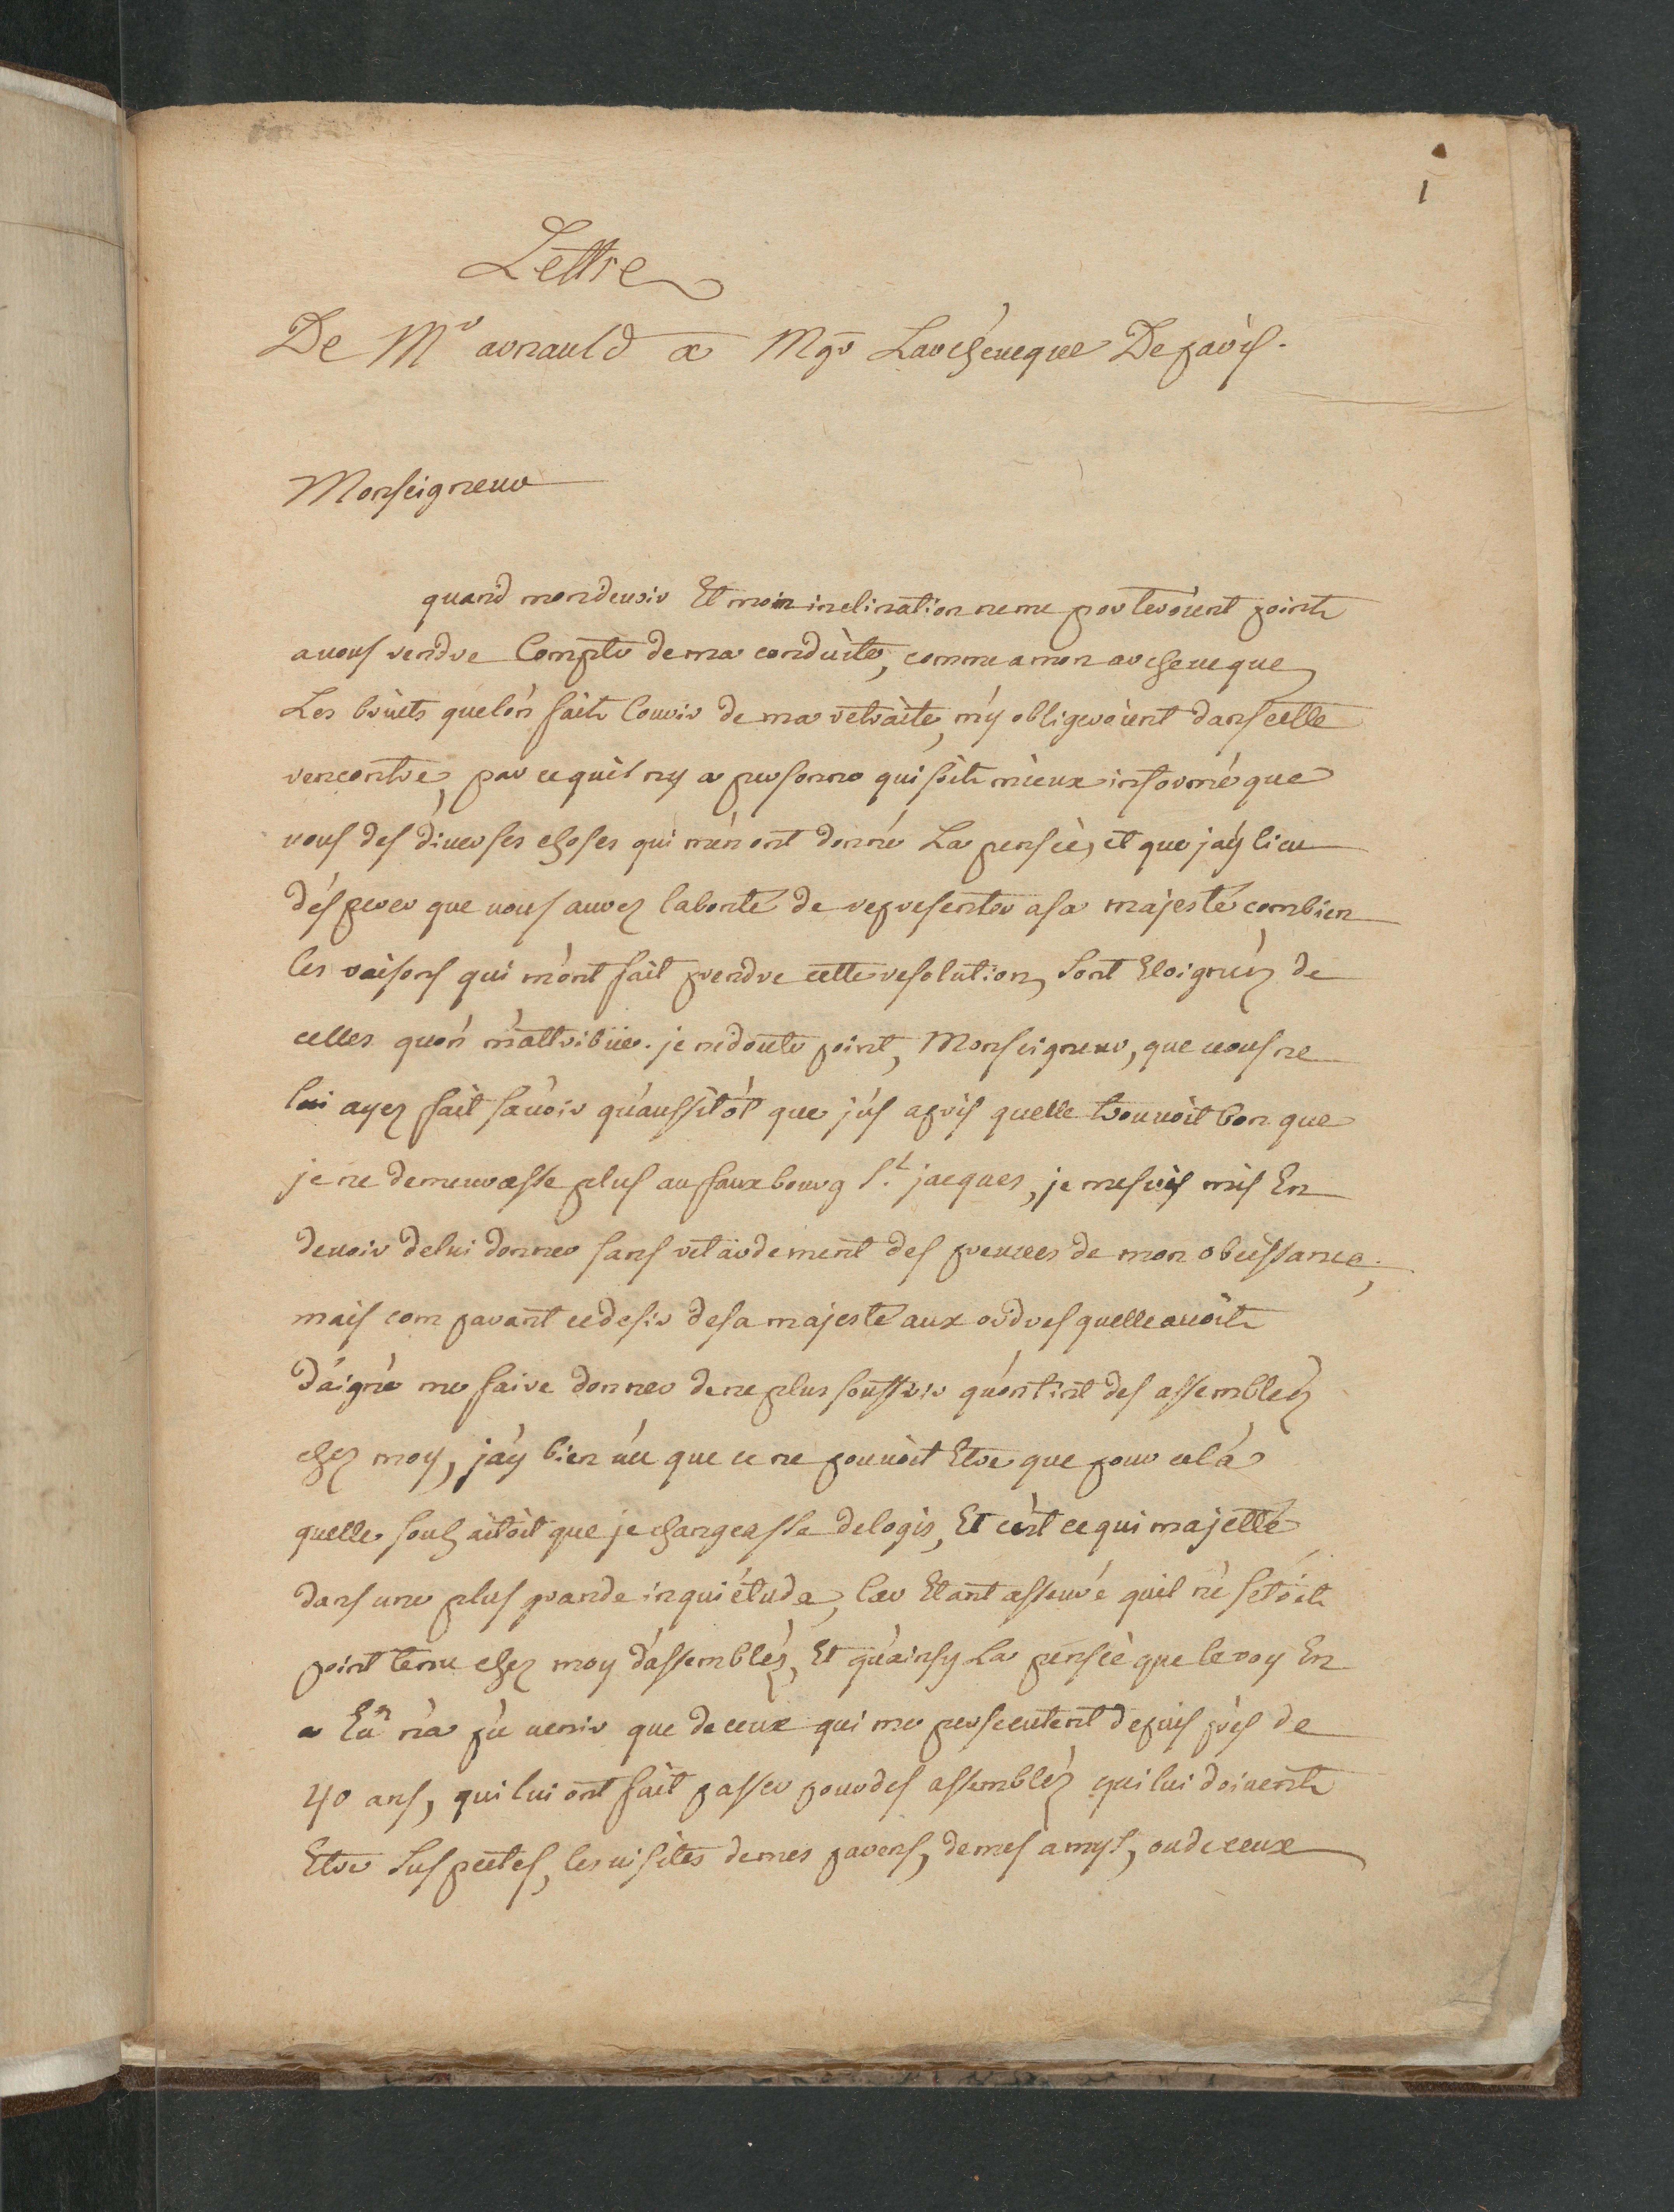 1
Lettre
De Mr arnauld a Mgr Larcheueque De paris.
Monseigneur
quand mon deuoir Et mon inclination ne me porteroient point
a uous rendre Compte de ma conduite, comme a mon archeueque
Les bruits que lon fait Courir de ma retraite, m'y obligeroient dans cette
rencontre, par ce qu'il ny a personne qui soit mieux informé que
uous des diuerses choses qui m'en ont donné La pensée, et que j'ay lieu
d'esperer que uous aurez la bonté de representer a sa majesté combien
les raisons qui m'ont fait prendre cette resolution, sont Eloignéz de
celles qu'on m'attribüe. je ne doute point, Monseigneur, que uous ne
lui ayez fait sauoir qu'aussitôt que j'us apris quelle trouuoit bon que
je ne demeurasse plus au fauxbourg St. jacques, je me suis mis En
deuoir de lui donner sans retardement des preuues de mon obeissance;
mais comparant ce desir de sa majesté aux ordres quelle auoit
daigné me faire donner de ne plus souffrir qu'on tint des assembléez
chez moy, j'ay bien uu que ce ne pouuoit Etre que pour celà
quelle souhaitoit que je changeasse de logis, Et c'est ce qui m'a jetté
dans une plus grande inquiétude, Car Etant asseuré quil ne s'etoit
point tenu chez moy d'assembléz, Et qu'ainsy La pensée que le roy En
a Eu n'a pu uenir que de ceux qui me persecutent depuis près de
40 ans, qui lui ont fait passer pour des assembléz qui lui doiuent
Etre suspectes, les uisites de mes parens, de mes amys, ou de ceux